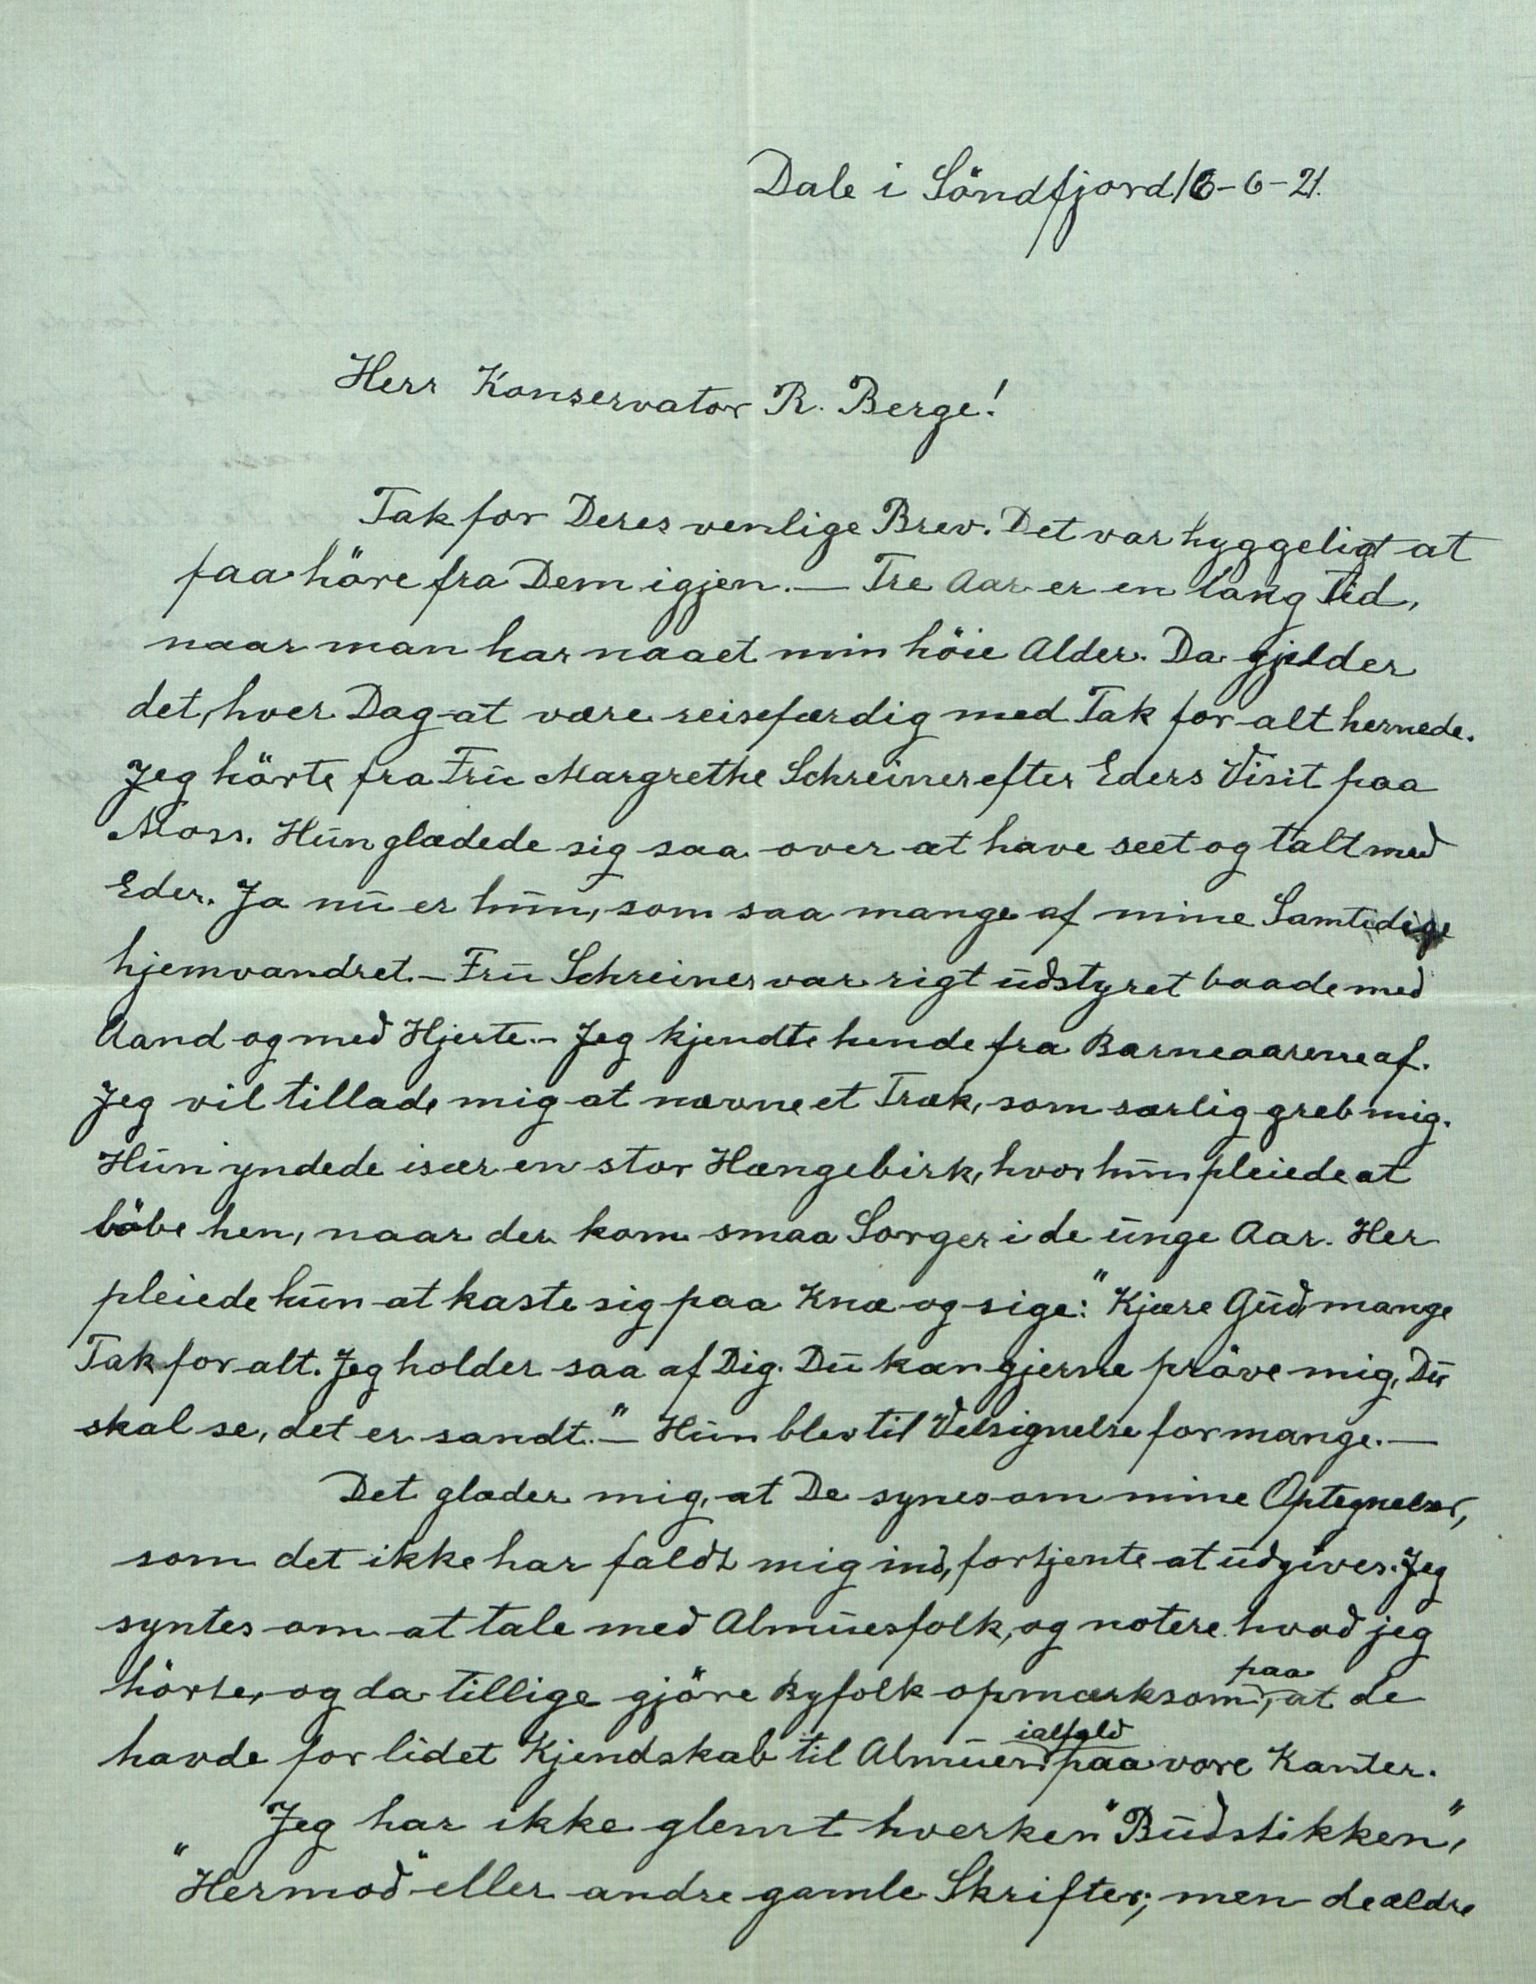 Dale i Söndfjord 16-6-21.
Herr Konservator R. Berge!
Tak for Deres venlige Brev. Det var hyggeligt at
faa höre fra Dem igjen. — Tre Aar er en lang Tid,
naar man har naaet min höie Alder. Da gjelder
det, hver Dag at være reisefærdig med Tak for alt hernede.
Jeg hörte fra Fru Margrethe Schreiner efter Eders Visit paa
Moss. Hun glædede sig saa over at have seet og talt med
Eder. Ja nu er hun, som saa mange af mine Samtidige
hjemvandret. — Fru Schreiner var rigt udstyret baade med
Aand og med Hjerte. — Jeg kjendte hende fra Barneaarene af.
Jeg vil tillade mig at nævne et Træk, som særlig greb mig.
Hun yndede især en stor Hængebirk, hvor hun pleiede at
löbe hen, naar der kom smaa Sorger i de unge Aar. Her
pleiede hun at kaste sig paa Knæ og sige: "Kjære Gud mange
Tak for alt. Jeg holder saa af Dig. Du kan gjerne pröve mig, Du
skal se, det er sandt." — Hun blev til Velsignelse for mange. —
Det glæder mig, at De synes om mine Optegnelser,
som det ikke har faldt mig ind, fortjente at udgives. Jeg
syntes om at tale med Almuesfolk, og notere hvad jeg
hörte, og da tillige gjöre Byfolk opmærksom paa, at de
havde for lidet Kjendskab til Almuen ialfald paa vore Kanter.
Jeg har ikke glemt hverken "Budstikken",
"Hermod" eller andre gamle Skrifter; men de ældre